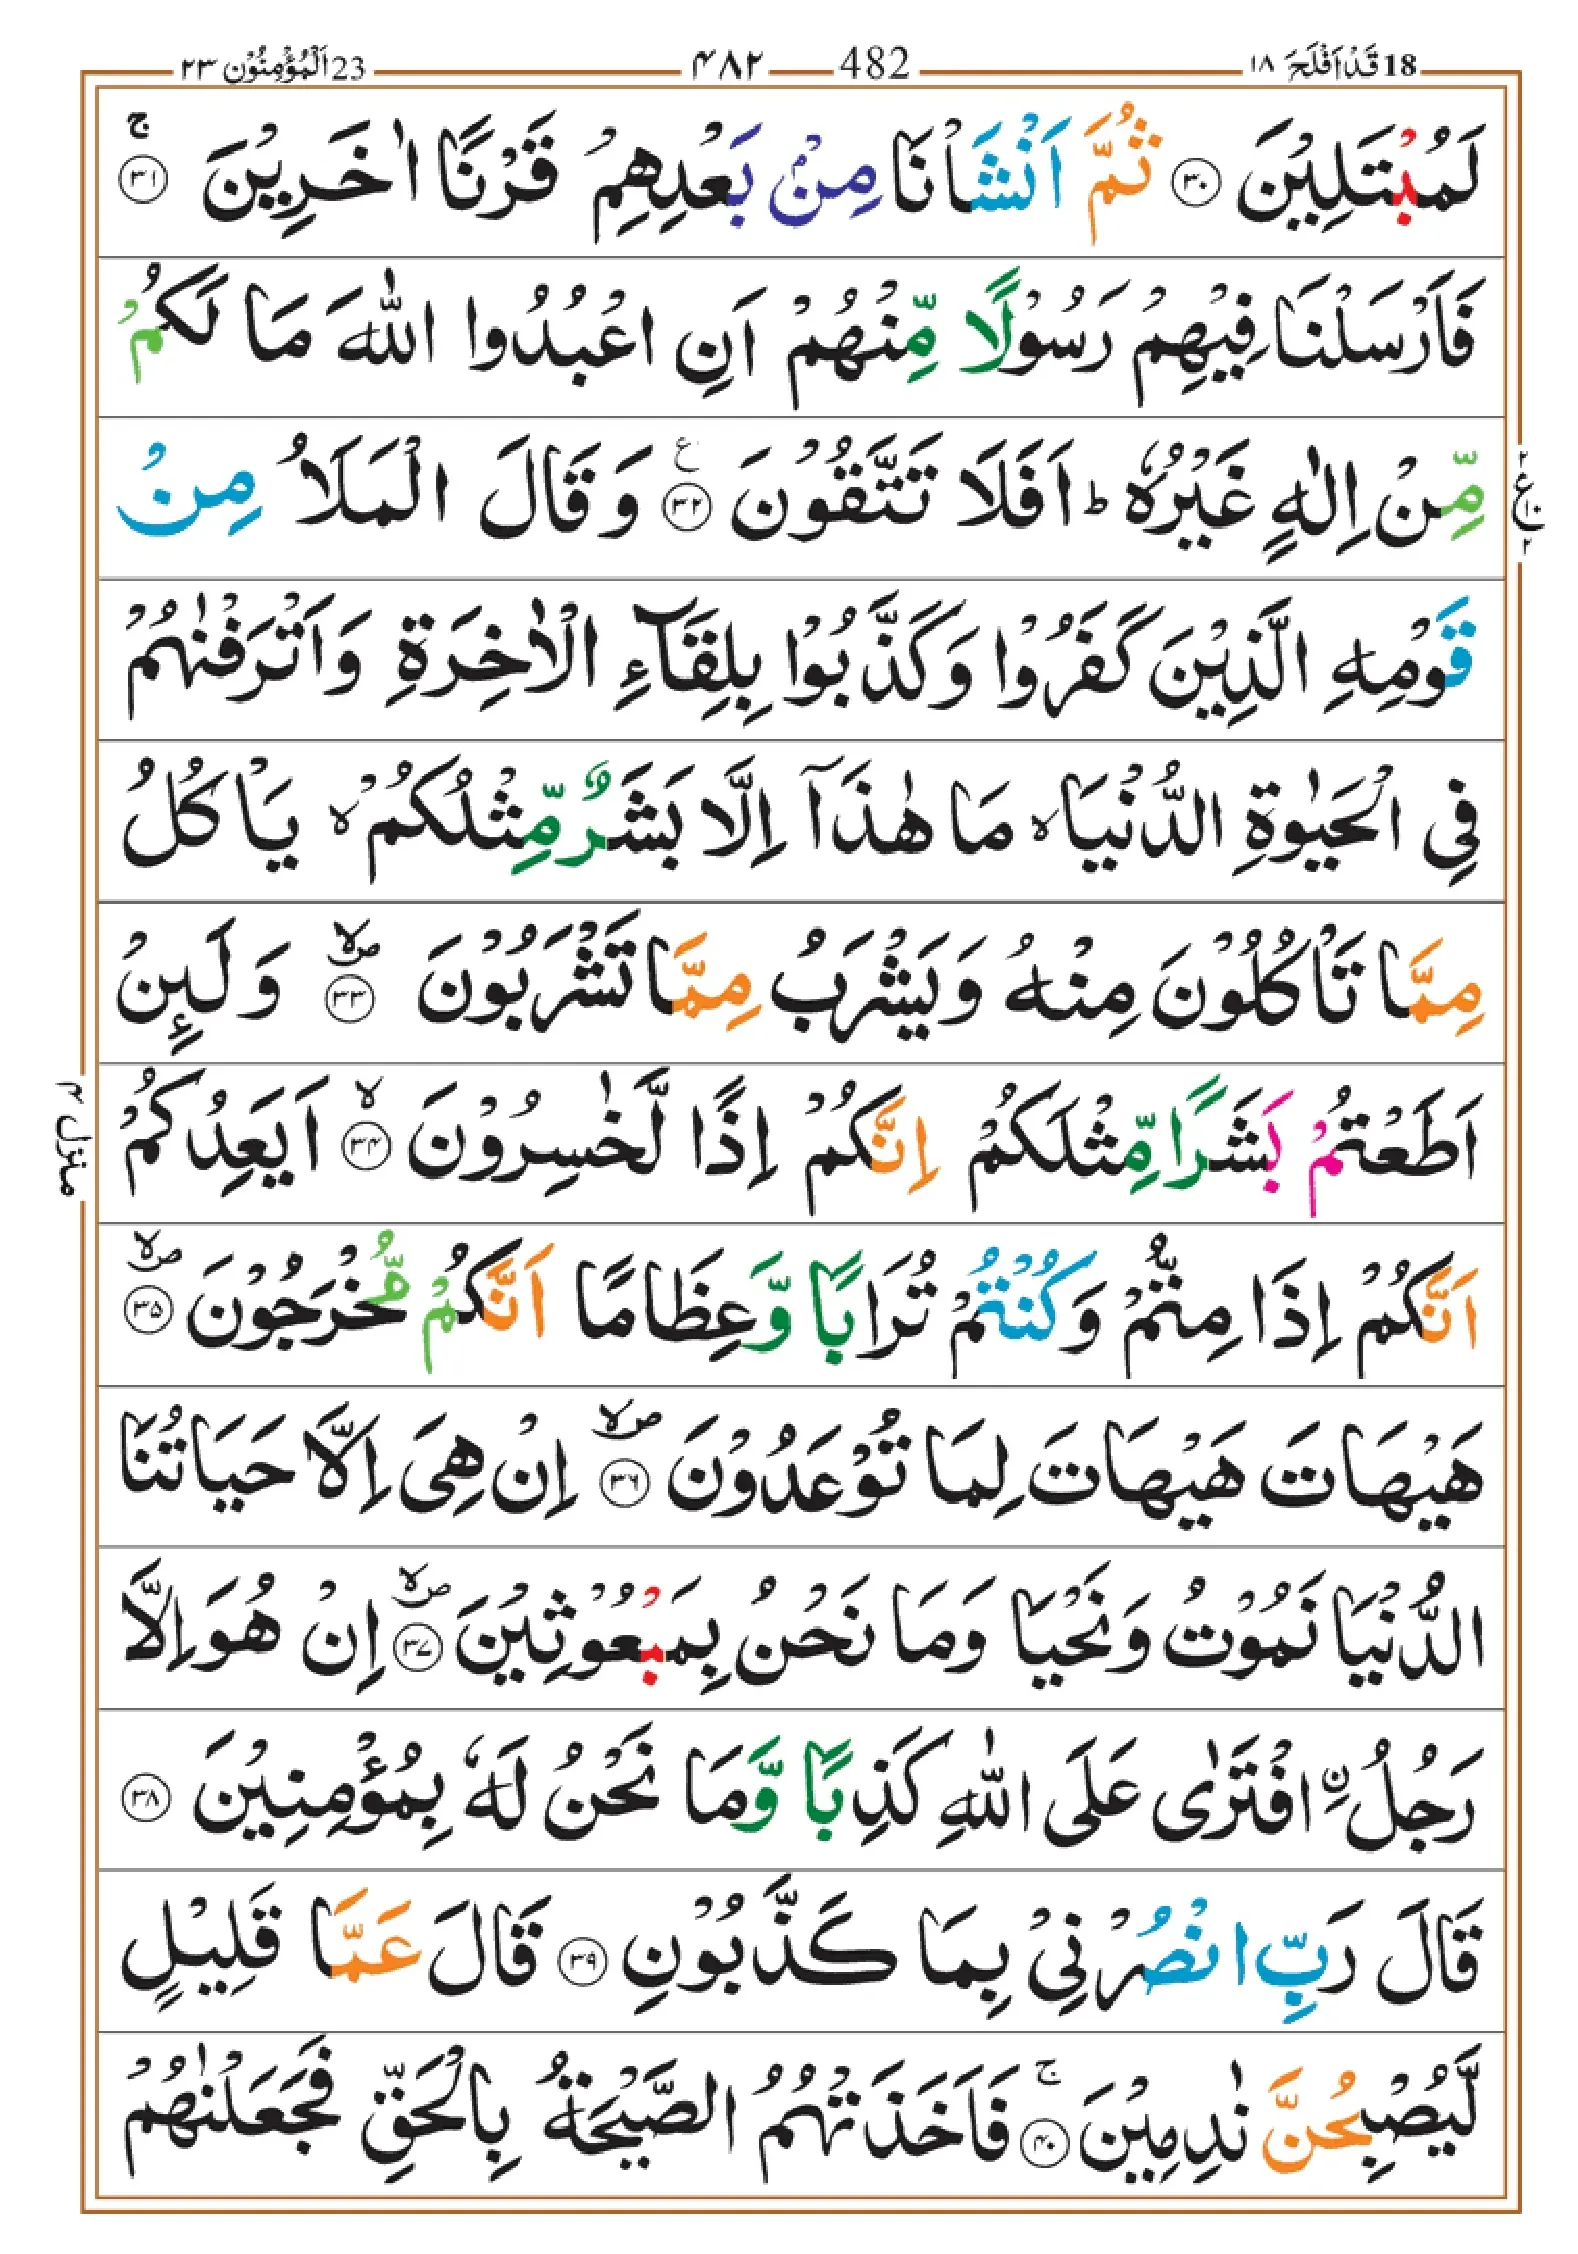 18 قَدْ اَفْلَحَ ۱۸ 482 ۴۸۲ 23 اَلْمُؤْمِنُوْن ۲۳
لَمُبْتَلِيْنَ ۳۰ ثُمَّ اَنْشَاْنَا مِنْۢ بَعْدِهِمْ قَرْنًا اٰخَرِيْنَ ۳۱ ۚ
فَاَرْسَلْنَا فِيْهِمْ رَسُوْلًا مِّنْهُمْ اَنِ اعْبُدُوا اللّٰهَ مَا لَكُمْ
مِّنْ اِلٰهٍ غَيْرُهٗ ؕ اَفَلَا تَتَّقُوْنَ ۳۲ ع وَقَالَ الْمَلَاُ مِنْ
۲ ع ۱۰ ۲
قَوْمِهِ الَّذِيْنَ كَفَرُوْا وَكَذَّبُوْا بِلِقَآءِ الْاٰخِرَةِ وَاَتْرَفْنٰهُمْ
فِى الْحَيٰوةِ الدُّنْيَا ۙ مَا هٰذَآ اِلَّا بَشَرٌ مِّثْلُكُمْ ۙ يَاْكُلُ
مِمَّا تَاْكُلُوْنَ مِنْهُ وَيَشْرَبُ مِمَّا تَشْرَبُوْنَ ۳۳ صلا وَلَىِٕنْ
اَطَعْتُمْ بَشَرًا مِّثْلَكُمْ اِنَّكُمْ اِذًا لَّخٰسِرُوْنَ ۳۴ ۙ اَيَعِدُكُمْ
منزل ۴
اَنَّكُمْ اِذَا مِتُّمْ وَكُنْتُمْ تُرَابًا وَّعِظَامًا اَنَّكُمْ مُّخْرَجُوْنَ ۳۵ صلا
هَيْهَاتَ هَيْهَاتَ لِمَا تُوْعَدُوْنَ ۳۶ صلا اِنْ هِىَ اِلَّا حَيَاتُنَا
الدُّنْيَا نَمُوْتُ وَنَحْيَا وَمَا نَحْنُ بِمَبْعُوْثِيْنَ ۳۷ صلا اِنْ هُوَ اِلَّا
رَجُلُ ن ِافْتَرٰى عَلَى اللّٰهِ كَذِبًا وَّمَا نَحْنُ لَهٗ بِمُؤْمِنِيْنَ ۳۸
قَالَ رَبِّ انْصُرْنِىْ بِمَا كَذَّبُوْنِ ۳۹ قَالَ عَمَّا قَلِيْلٍ
لَّيُصْبِحُنَّ نٰدِمِيْنَ ۴۰ ۚ فَاَخَذَتْهُمُ الصَّيْحَةُ بِالْحَقِّ فَجَعَلْنٰهُمْ